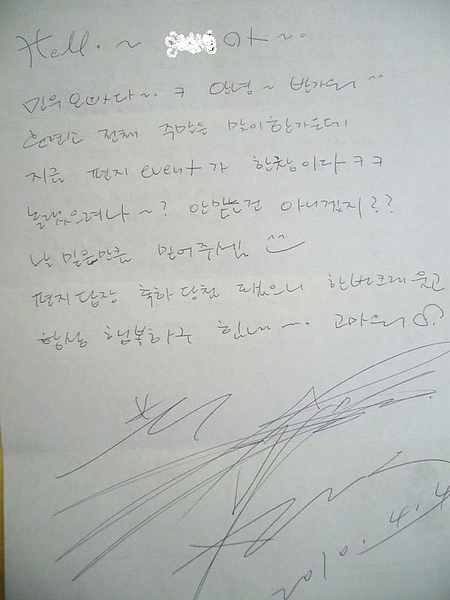 Hell. ~ 아~.
민의 오빠다~. ㅋ 안녕~ 반가워 ^^
훈련소 전체 주말은 많이한가운데
지금 편지 event가 한창이다 ㅋㅋ
놀랬으려나~? 안믿는건 아니겠지??
날 믿은만큼 믿어주셈
편지답장 축하 당첨 됐으니 한번크게 웃고
항상 행복하구 힘내~. 고마워
2010. 4. 4